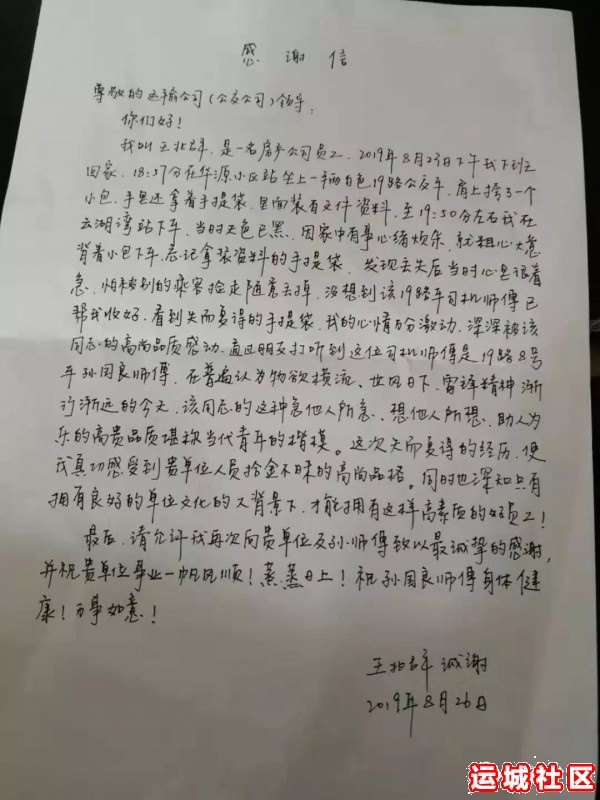 感谢信
尊敬的运输公司(公交公司)领导:
你们好!
我叫王北, 是一名房产公司员工, 2019年8月23日下午我下班
回家, 18:57分在华源小区站坐上一辆白色19路公交车, 肩上挎了一个
小包, 手里还拿着手提袋, 里面装有文件资料, 至19:50分左右我在
云湖湾站下车, 当时天色已黑, 因家中有事心绪烦乐, 就粗心大意
背着小包下车, 忘记拿装资料的手提袋, 发现丢失后当时心里很着
急, 怕被别的乘客捡走随意丢掉, 没想到该19路车司机师傅已
帮我收好, 看到失而复得的手提袋, 我的心情万分激动, 深深被该
同志的高尚品质感动, 通过朋友打听到这位司机师傅是19路8号
车孙国良师傅, 在普遍认为物欲横流、世风日下, 雷锋精神渐
行渐远的今天, 该同志的这种急他人所急、想他人所想、助人为
乐的高贵品质堪称当代青年的楷模。这次失而复得的经历, 使
我真切感受到贵单位人员拾金不昧的高尚品格。同时也深知只有
拥有良好的单位文化的大背景下, 才能拥有这样高素质的好员工!
最后, 请允许我再次向贵单位及孙师傅致以最诚挚的感谢,
并祝贵单位事业一帆风顺! 蒸蒸日上! 祝孙国良师傅身体健
康! 万事如意!
王北 诚谢
2019年8月26日
运城社区